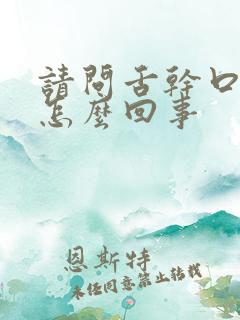 請問舌幹口
怎麼回事
恩斯特
未經同意禁止轉載